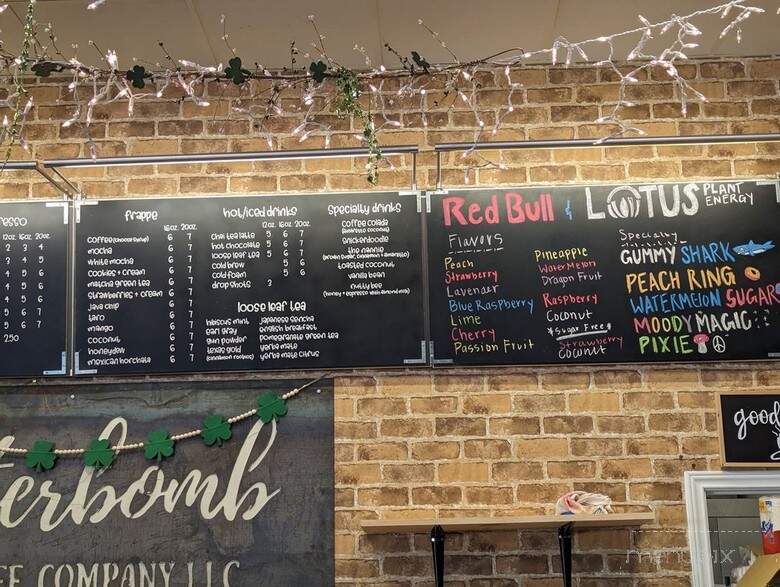 resso
12oz. 16oz. 20oz.
2 3 4
4 5 6
4 5 6
4 5 6
4 5 6
4 5 6
5 6 7
5 6 7
2.50
frappe
16oz. 20oz.
coffee (choose syrup) 6 7
mocha 6 7
white mocha 6 7
cookies + cream 6 7
matcha green tea 6 7
strawberries + cream 6 7
java chip 6 7
taro 6 7
mango 6 7
coconut 6 7
honeydew 6 7
mexican horchata 6 7
hot/iced drinks
12oz. 16oz. 20oz.
chai tea latte 5 6 7
hot chocolate 4 5 6
loose leaf tea 4 5 6
cold brew 5 6
cold foam 5 6
drop shots 3
loose leaf tea
hibiscus mint
earl gray
gun powder
texas gold
(cinnamon rooibos)
japanese sencha
english breakfast
pomegranate green tea
yerba mate
yerba mate citrus
specialty drinks
coffee colada
(amaretto coconut)
snickerdoodle
the nannie
(brown sugar, cinnamon + amaretto)
toasted coconut
vanilla bean
nutty bee
(honey + espresso with almond milk)
Red Bull & LOTUS PLANT ENERGY
Flavors
Peach
Strawberry
Lavender
Blue Raspberry
Lime
Cherry
Passion Fruit
Pineapple
Watermelon
Dragon Fruit
Raspberry
Coconut
*Sugar Free*
Strawberry
Coconut
Specialty
GUMMY SHARK
PEACH RING
WATERMELON SUGAR
MOODY MAGIC
PIXIE
terbomb
FEE COMPANY LLC
good